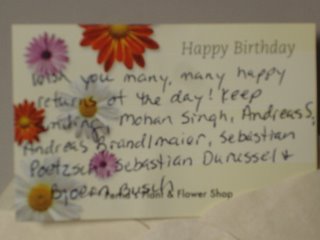 Happy Birthday
Wish you many, many happy
returns of the day! Keep
Mohan Singh, Andreas S,
Andreas Brandlmaier, Sebastian
Poetzsch, Sebastian Durussel &
Bjoern Busch
Plant & Flower Shop